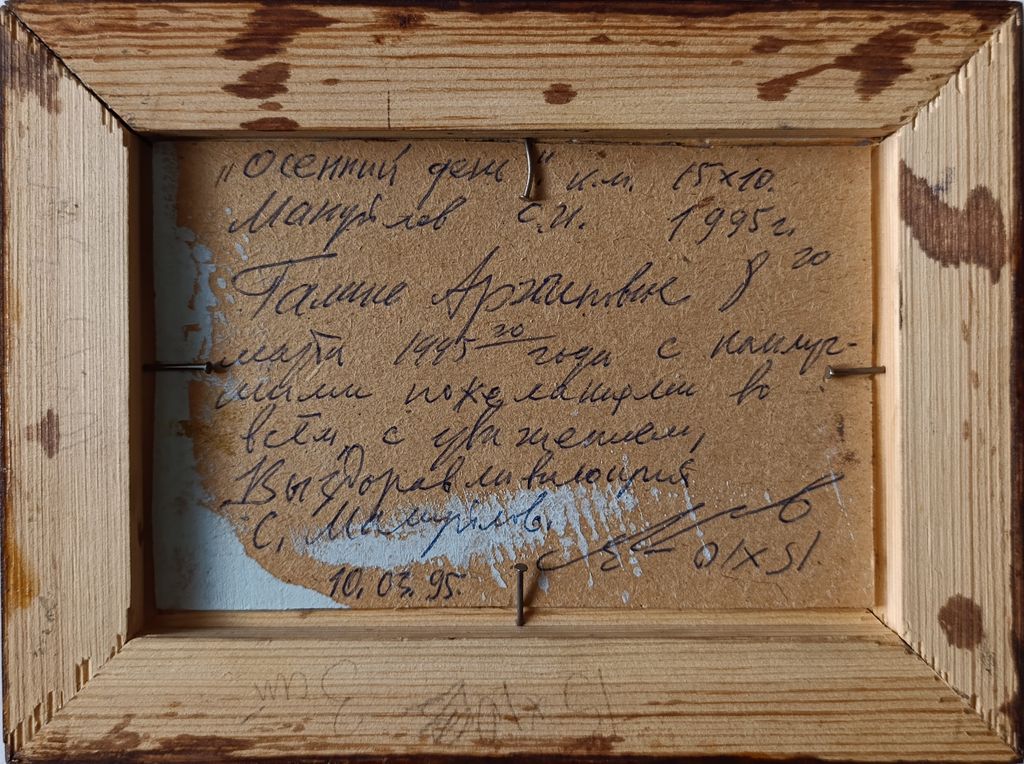 „Осенний день". к.м. 15х10.
Мануйлов С.И. 1995г.
Галине 8
марта 1995 20 года с наилуч-
шими пожеланиями во
всём, с уважением,
Выздоравливающия
С. Мануйлов.
10.03.95.
15х10